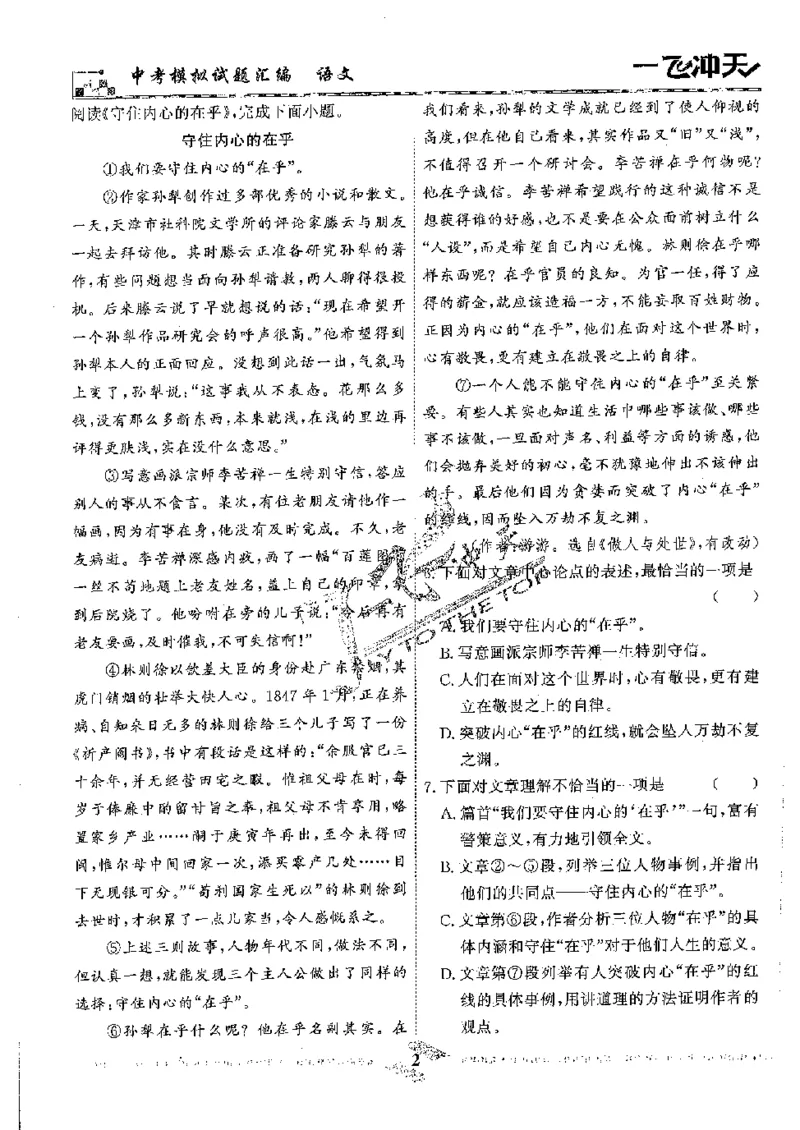 中考模拟试题汇编 语文
一飞冲天
阅读《守住内心的在乎》,完成下面小题。
守住内心的在乎
①我们要守住内心的“在乎”。
②作家孙犁创作过多部优秀的小说和散文。
一天,天津市社科院文学所的评论家滕云与朋友
一起去拜访他。其时滕云正准备研究孙犁的著
作,有些问题想当面向孙犁请教,两人聊得很投
机。后来滕云说了早就想说的话:“现在希望开
一个孙犁作品研究会的呼声很高。”他希望得到
孙犁本人的正面回应。没想到此话一出,气氛马
上变了,孙犁说:“这事我从不表态。花那么多
钱,没有那么多新东西,本来就浅,在浅的里边再
评得更肤浅,实在没什么意思。”
③写意画派宗师李苦禅一生特别守信,答应
别人的事从不食言。某次,有位老朋友请他作一
幅画,因为有事在身,他没有及时完成。不久,老
友病逝。李苦禅深感内疚,画了一幅“百莲图”,
一丝不苟地题上老友姓名,盖上自己的印章,拿
到后院烧了。他吩咐在旁的儿子说:“今后再有
老友要画,及时催我,不可失信啊!”
④林则徐以钦差大臣的身份赴广东禁烟,其
虎门销烟的壮举大快人心。1847年1月,正在养
病、自知来日无多的林则徐给三个儿子写了一份
《析产阄书》,书中有段话是这样的:“余服官已三
十余年,并无经营田宅之暇。惟祖父母在时,每
岁于俸廉中酌留甘旨之奉,祖父母不肯享用,略
置家乡产业……嗣于庚寅年再出,至今未得回
闽,惟尔母中间回家一次,添买零产几处……目
下无现银可分。”“苟利国家生死以”的林则徐到
去世时,才积累了一点儿家当,令人感慨系之。
⑤上述三则故事,人物年代不同,做法不同,
但认真一想,就能发现三个主人公做出了同样的
选择:守住内心的“在乎”。
⑥孙犁在乎什么呢?他在乎名副其实。在
我们看来,孙犁的文学成就已经到了使人仰视的
高度,但在他自己看来,其实作品又“旧”又“浅”,
不值得召开一个研讨会。李苦禅在乎何物呢?
他在乎诚信。李苦禅希望践行的这种诚信不是
想获得谁的好感,也不是要在公众面前树立什么
“人设”,而是希望自己内心无愧。林则徐在乎哪
样东西呢?在乎官员的良知。为官一任,得了应
得的薪金,就应该造福一方,不能妄取百姓财物。
正因为内心的“在乎”,他们在面对这个世界时,
心有敬畏,更有建立在敬畏之上的自律。
⑦一个人能不能守住内心的“在乎”至关紧
要。有些人其实也知道生活中哪些事该做、哪些
事不该做,一旦面对声名、利益等方面的诱惑,他
们会抛弃美好的初心,毫不犹豫地伸出不该伸出
的手。最后他们因为贪婪而突破了内心“在乎”
的红线,因而坠入万劫不复之渊。
(作者:游游。选自《做人与处世》,有改动)
6.下面对文章中心论点的表述,最恰当的一项是
( )
A.我们要守住内心的“在乎”。
B.写意画派宗师李苦禅一生特别守信。
C.人们在面对这个世界时,心有敬畏,更有建
立在敬畏之上的自律。
D.突破内心“在乎”的红线,就会坠入万劫不复
之渊。
7.下面对文章理解不恰当的一项是 ( )
A.篇首“我们要守住内心的‘在乎’”一句,富有
警策意义,有力地引领全文。
B.文章②~⑤段,列举三位人物事例,并指出
他们的共同点——守住内心的“在乎”。
C.文章第⑥段,作者分析三位人物“在乎”的具
体内涵和守住“在乎”对于他们人生的意义。
D.文章第⑦段列举有人突破内心“在乎”的红
线的具体事例,用讲道理的方法证明作者的
观点。
2